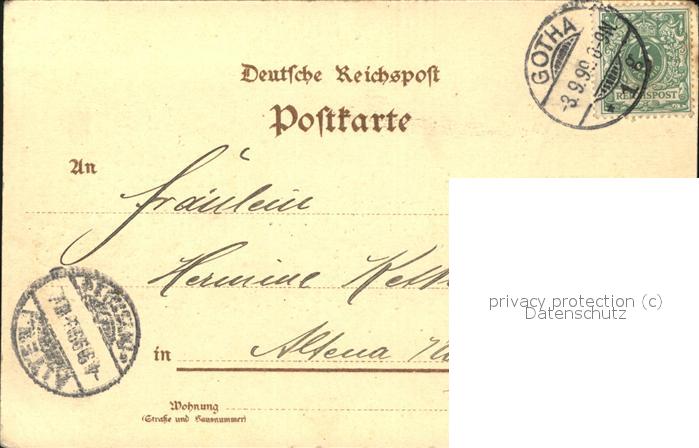 Deutsche Reichspost
Postkarte
GOTHA
3.9.99.8-9N.
* 1 g
REICHSPOST
An
Fräulein
Hermine
privacy protection (c)
Datenschutz
in
Altena
ALTENA
Wohnung
(Straße und Hausnummer)